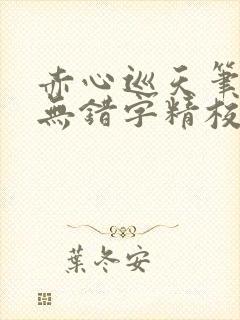 赤心巡天筆
無錯字精校
葉冬安